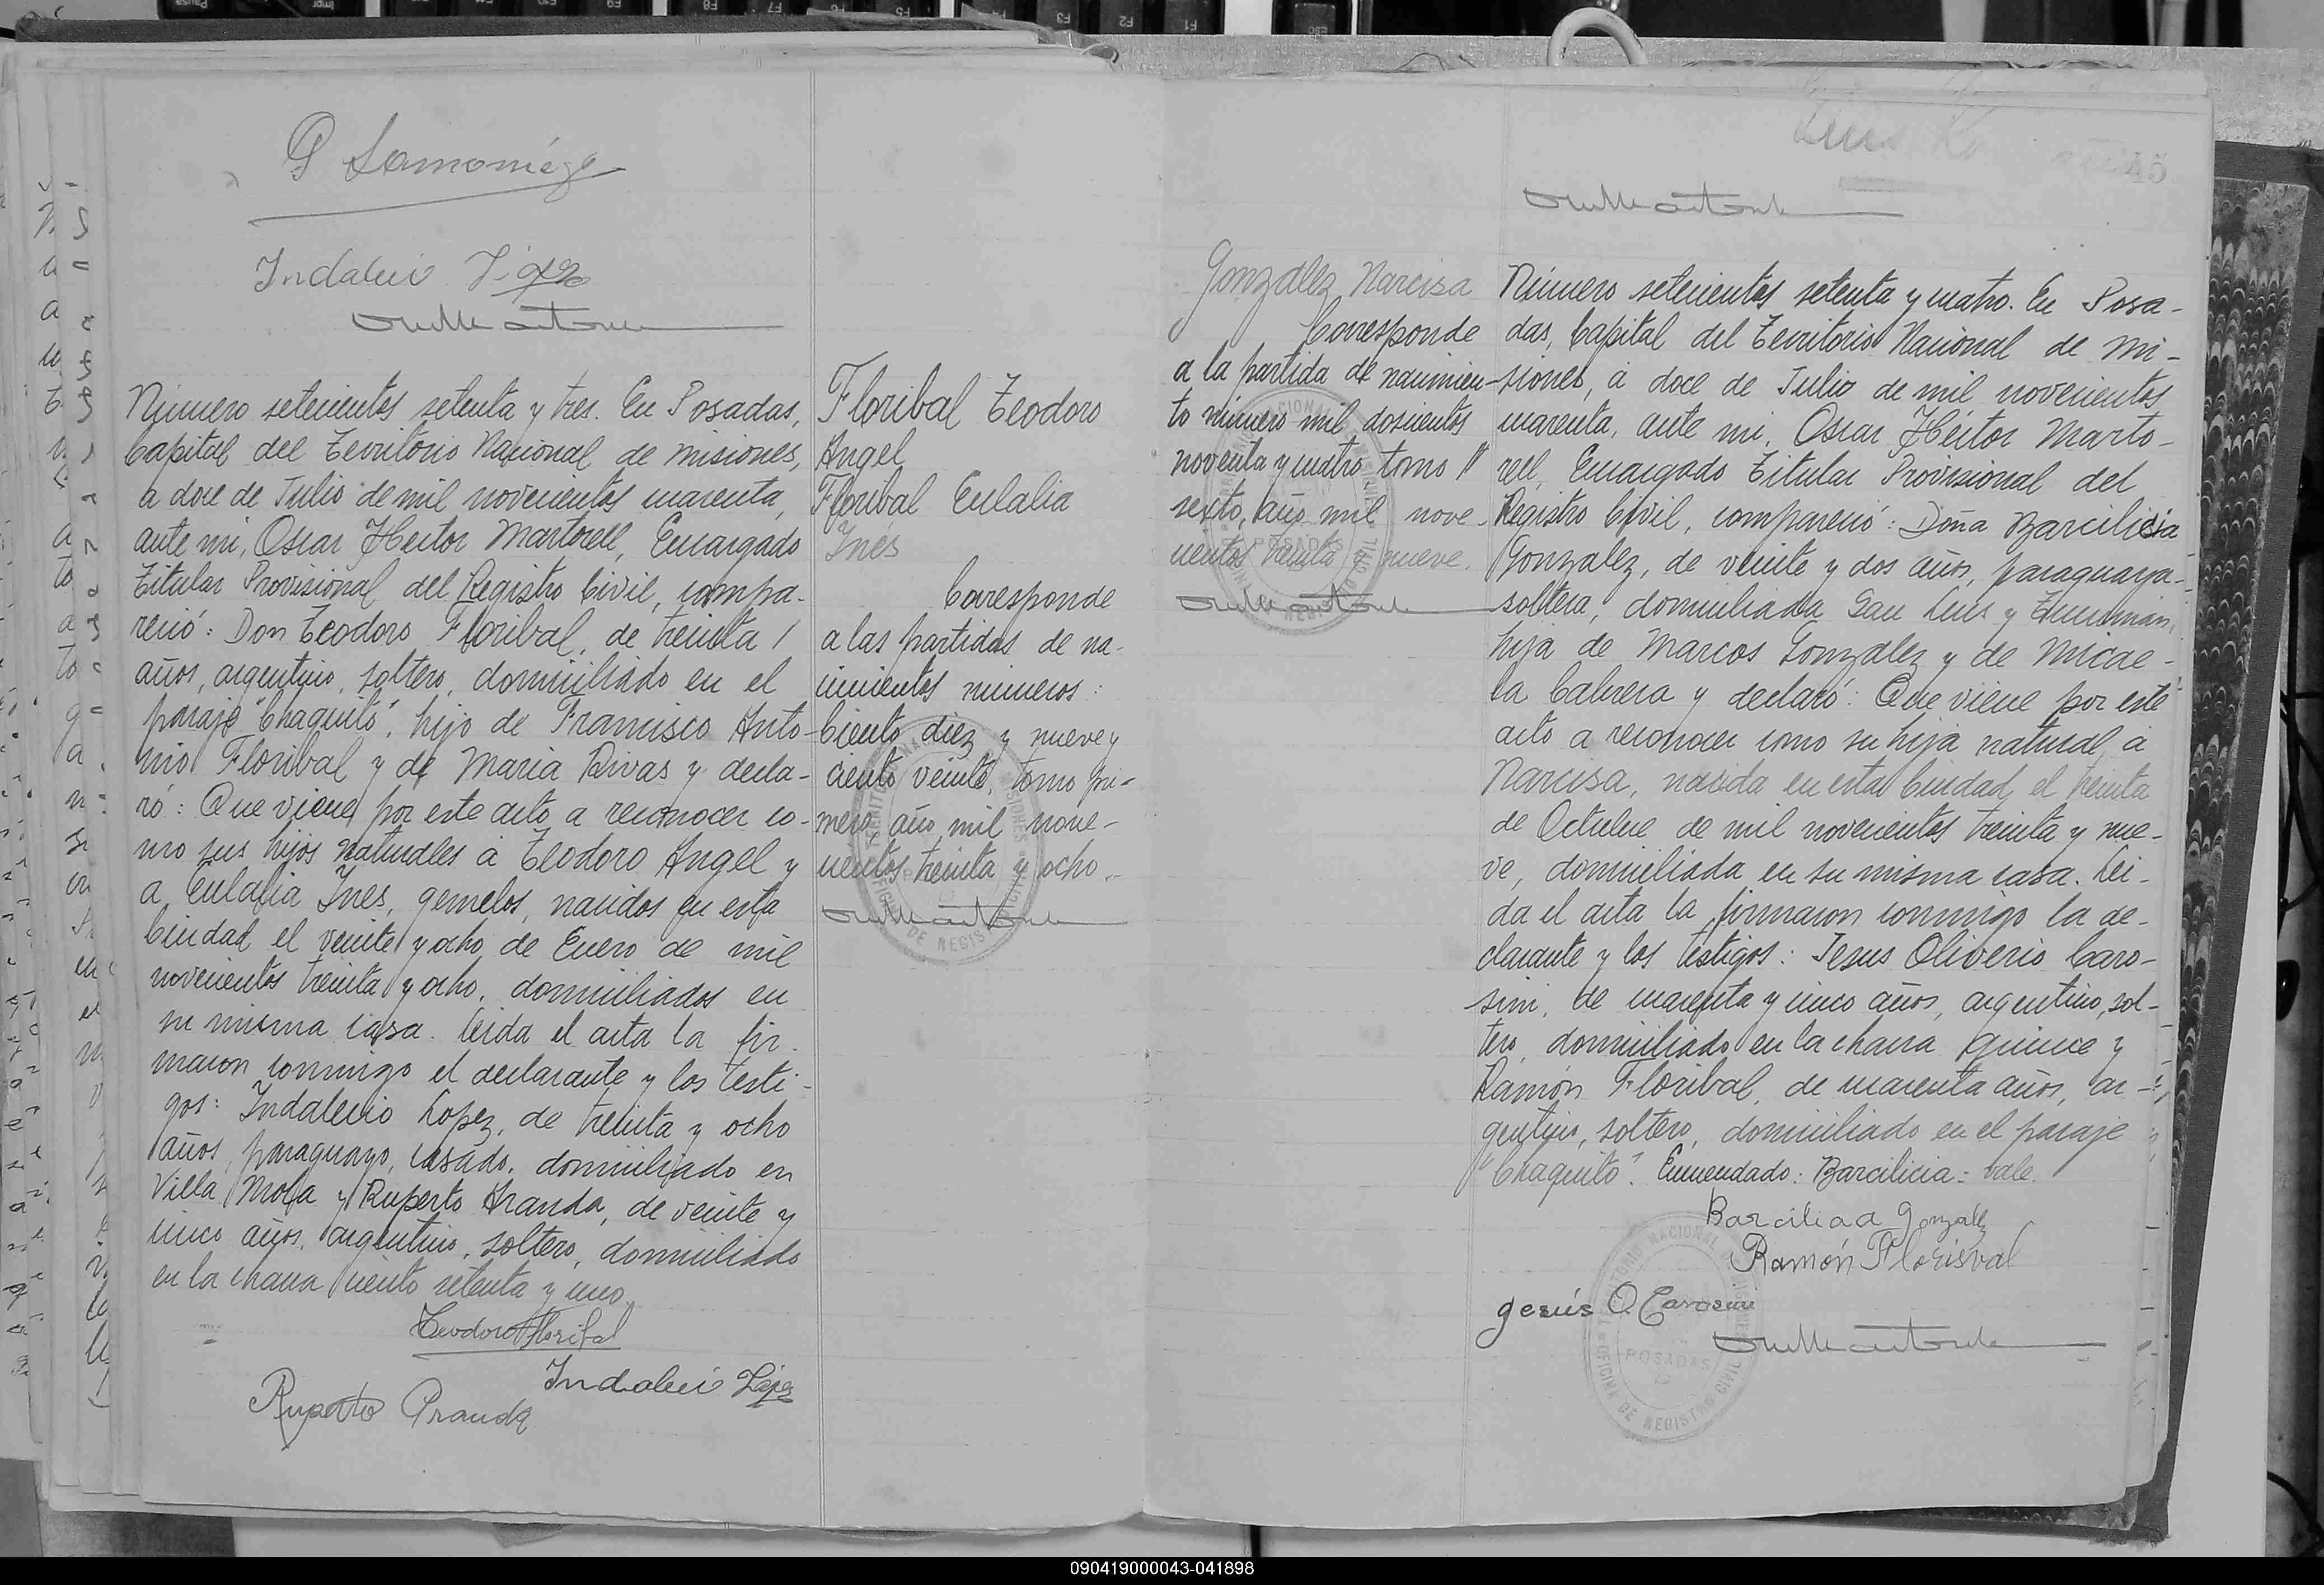 P Samoniego
Indalecio López
Número setecientos setenta y tres. En Posadas,
Capital del Territorio Nacional de Misiones,
a doce de Julio de mil novecientos cuarenta,
ante mi, Oscar Héctor Martorell, Encargado
Titular Provisional del Registro Civil, compa-
reció: Don Teodoro Floribal, de treinta
años, argentino, soltero, domiciliado en el
paraje "Chaquito", hijo de Francisco Anto-
nio Floribal y de Maria Rivas y decla-
ró: Que viene por este acto a reconocer co-
mo sus hijos naturales á Teodoro Angel y
a Eulalia Ines, gemelos, nacidos en esta
Ciudad el veinte y ocho de Enero de mil
novecientos treinta y ocho, domiciliados en
su misma casa. Leida el acta la fir-
maron conmigo el declarante y los testi-
gos: Indalecio Lopez, de treinta y ocho
años, paraguayo, casado, domiciliado en
Villa Mola y Ruperto Aranda, de veinte y
cinco años, argentino, soltero, domiciliado
en la chacra ciento setenta y uno.
Teodoro Floribal
Indalecio López
Ruperto Aranda
Floribal Teodoro
Angel
Floribal Eulalia
Inés
Corresponde
a las partidas de na-
cimientos números:
Ciento diez y nueve y
ciento veinte, tomo pri-
mero, año mil nove-
cientos treinta y ocho.
45
González Narcisa
Corresponde
a la partida de nacimien-
to número mil doscientos
noventa y cuatro tomo
sexto, año mil nove-
cientos treinta y nueve.
Número setecientos setenta y cuatro. En Posa-
das, Capital del Territorio Nacional de Mi-
siones, á doce de Julio de mil novecientos
cuarenta, ante mi, Oscar Héctor Marto-
rell, Encargado Titular Provisional del
Registro Civil, compareció: Doña Barcilicia
Gonzalez, de veinte y dos años, paraguaya-
soltera, domiciliada San Luis y Tucumán,
hija de Marcos Gonzalez y de Micae-
la Cabrera y declaró: Que viene por este
acto a reconocer como su hija natural á
Narcisa, nacida en esta Ciudad, el treinta
de Octubre de mil novecientos treinta y nue-
ve, domiciliada en su misma casa. Lei-
da el acta la firmaron conmigo la de-
clarante y los testigos: Jesus Oliverio Caro-
sini, de cuarenta y cinco años, argentino, sol-
tero, domiciliado en la chacra quince y
Ramón Floribal, de cuarenta años, ar-
gentino, soltero, domiciliado en el paraje
"Chaquito". Enmendado: Barcilicia: vale.
Barciliad Gonzalez
Ramón Florisval
Jesús O. Carosini
POSADAS
OFICINA DE REGISTRO CIVIL
090419000043-041898